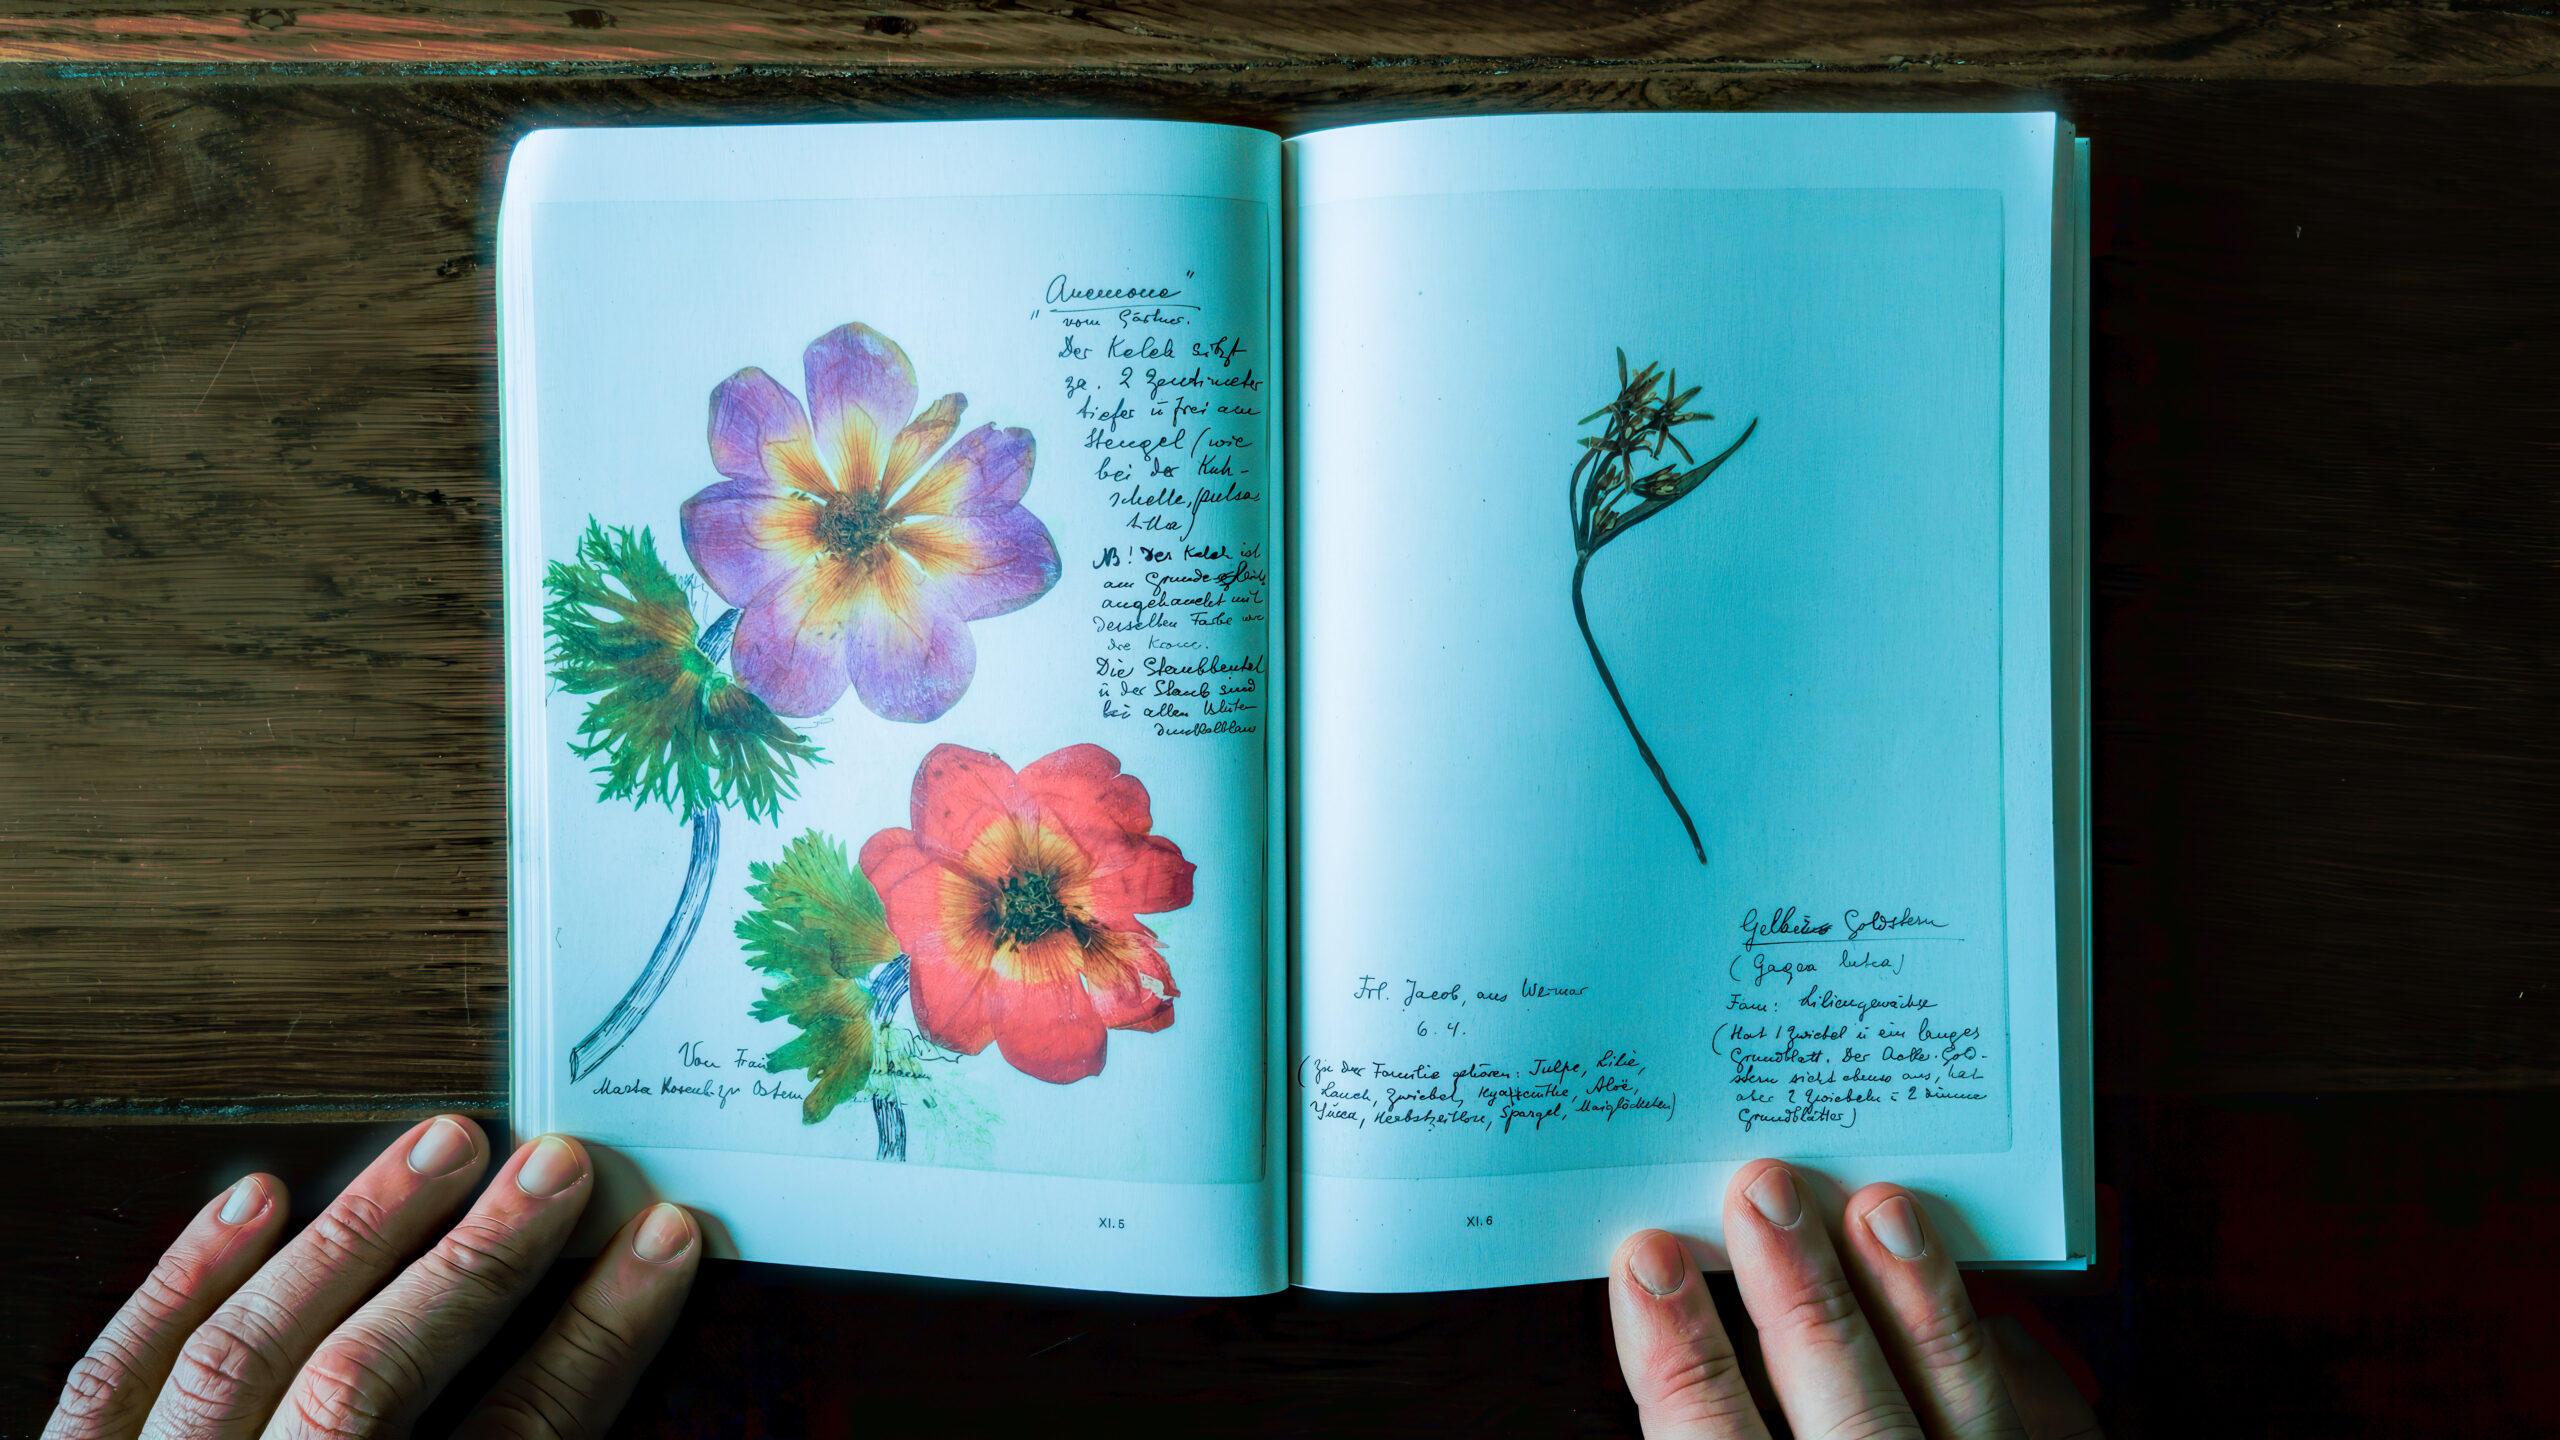 "Anemone"
" vom Gärtner.
Der Kelch sitzt
za. 2 Zentimeter
tiefer ü frei am
Stengel (wie
bei der Kuh-
schelle, pulsa-
tilla)
NB! Der Kelch ist
am Grunde
angehaucht mit
derselben Farbe wie
die Krone.
Die Staubbeutel
ü der Staub sind
bei allen Blüten
dunkelblau
Von Frau
Marta Rosenb. zu Ostern
XI.5
Gelber Goldstern
(Gagea lutea)
Fam: Liliengewächse
(Hat 1 Zwiebel ü ein langes
Grundblatt. Der Acker-Gold-
stern sieht ebenso aus, hat
aber 2 Zwiebeln ü 2 dünne
Grundblätter)
Frl. Jacob, aus Weimar
6.4.
(zu der Familie gehören: Tulpe, Lilie,
Lauch, Zwiebel, Hyazinthe, Aloë,
Yucca, Herbstzeitlose, Spargel, Maiglöckchen)
XI.6